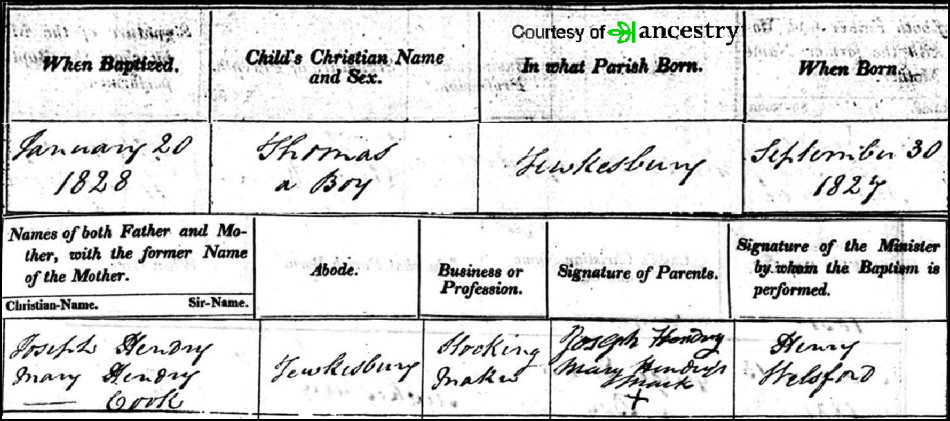 Courtesy of ancestry
When Baptized.
Child's Christian Name
and Sex.
In what Parish Born.
When Born.
January 20
1828
Thomas
a Boy
Tewkesbury
September 30
1827
Names of both Father and Mo-
ther, with the former Name
of the Mother.
Christian-Name. Sir-Name.
Abode.
Business or
Profession.
Signature of Parents.
Signature of the Minister
by whom the Baptism is
performed.
Joseph Hendry
Mary Hendry
Cook
Tewkesbury
Stocking
Maker
Joseph Hendry
Mary Hendrys
Mark
+
Henry
Welsford